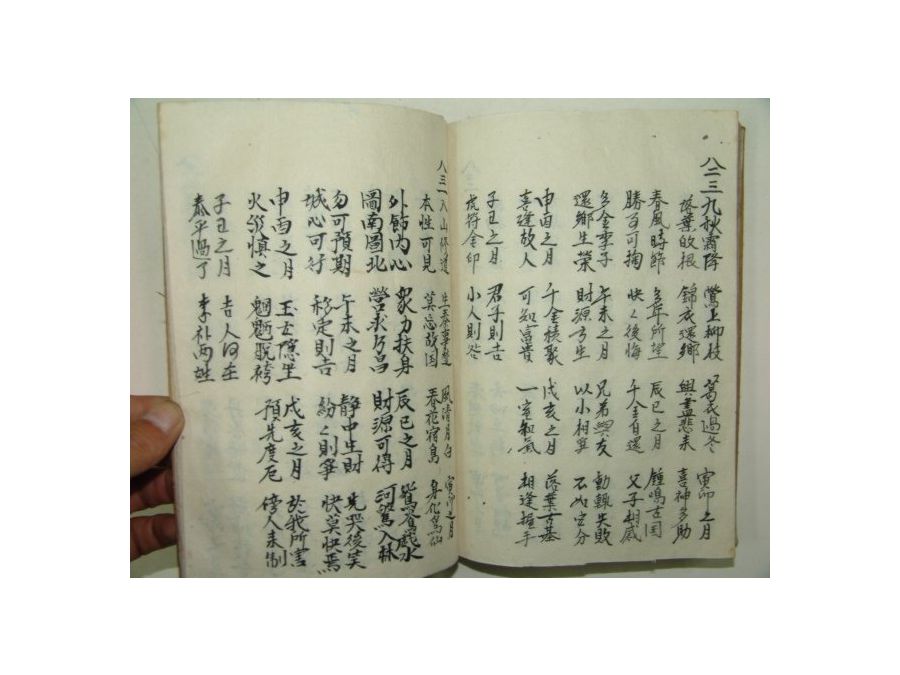 八二三 九秋霜降 鶯上柳枝 葛衣過冬 寅卯之月
落葉 根 錦衣還鄉 興盡悲來 喜神多助
春風時節 多年所望 辰巳之月 鍾鳴古囯
勝方可 快〻後悔 千金自還 父子相感
多金季子 午未之月 兄弟 友 動輒失敗
還鄉生榮 財源方生 以小相 不如守分
申酉之月 千金積聚 戌亥之月 落葉古基
喜逢故人 可知富貴 一室和氣 相逢握手
子丑之月 君子則吉
虎符金印 小人則咎
八三一 入山修道 生 事 風清月白 寅卯之月
本性可見 莫忘故囯 春花宿鳥 身化為仙
外飾內心 衆力扶身 辰巳之月 鴛 戲水
圖南圖北 營求乃昌 財源可得 河 入林
勿可預期 午未之月 靜中生財 先哭後笑
城心可行 移定則吉 紛〻則爭 快莫快焉
申酉之月 玉 隱 戌亥之月 於我所害
火災慎之 魍魎脫袴 預先度厄 傍人未制
子丑之月 吉人何在
泰平過了 李朴兩姓